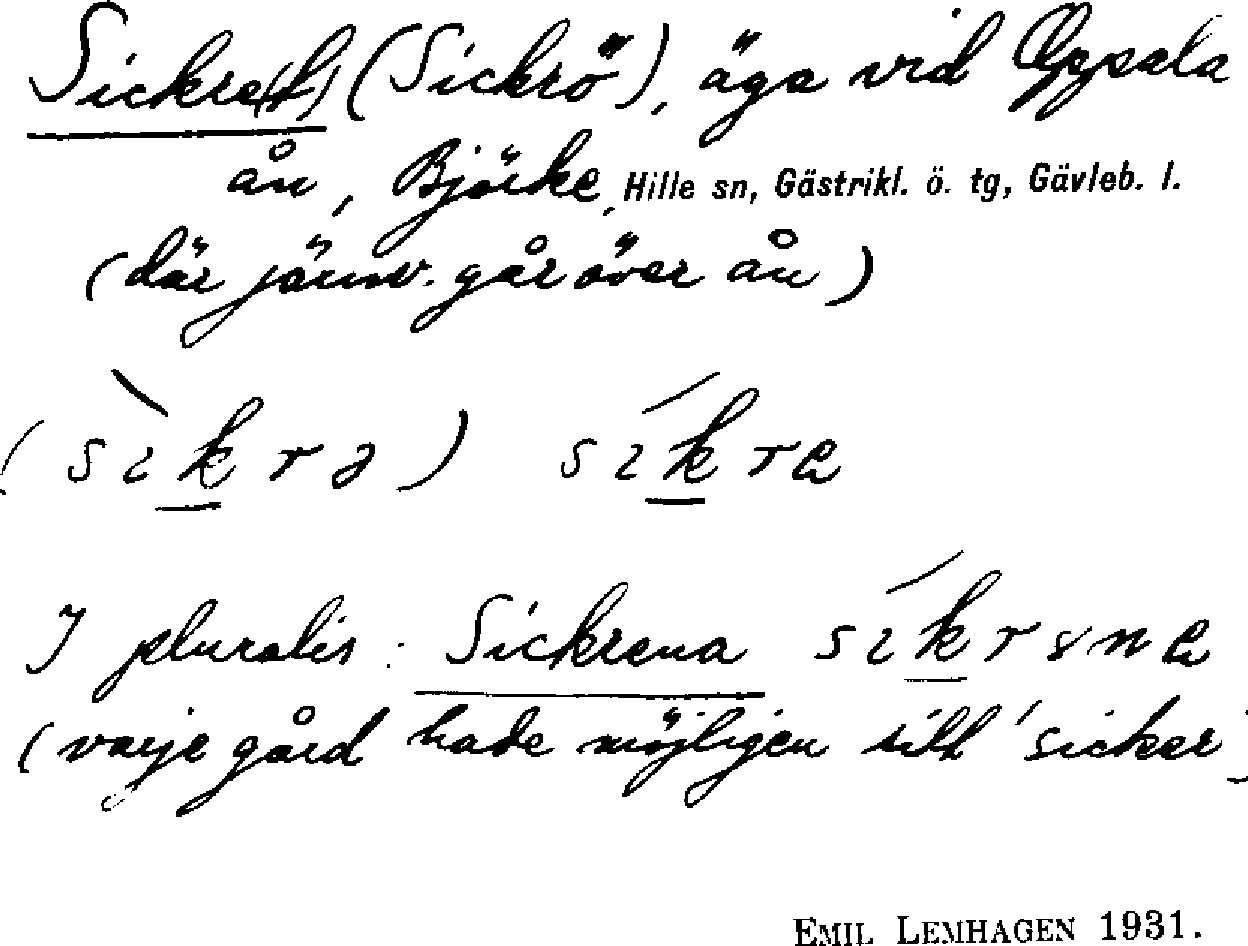 Sickre(t) (Sickrö), äga vid Oppsala
ån, Björke, Hille sn, Gästrikl. ö. tg, Gävleb. l.
(där järnv. går över ån)
I pluralis: Sickrena
(varje gård hade möjligen sitt 'sicker'
EMIL LEMHAGEN 1931.